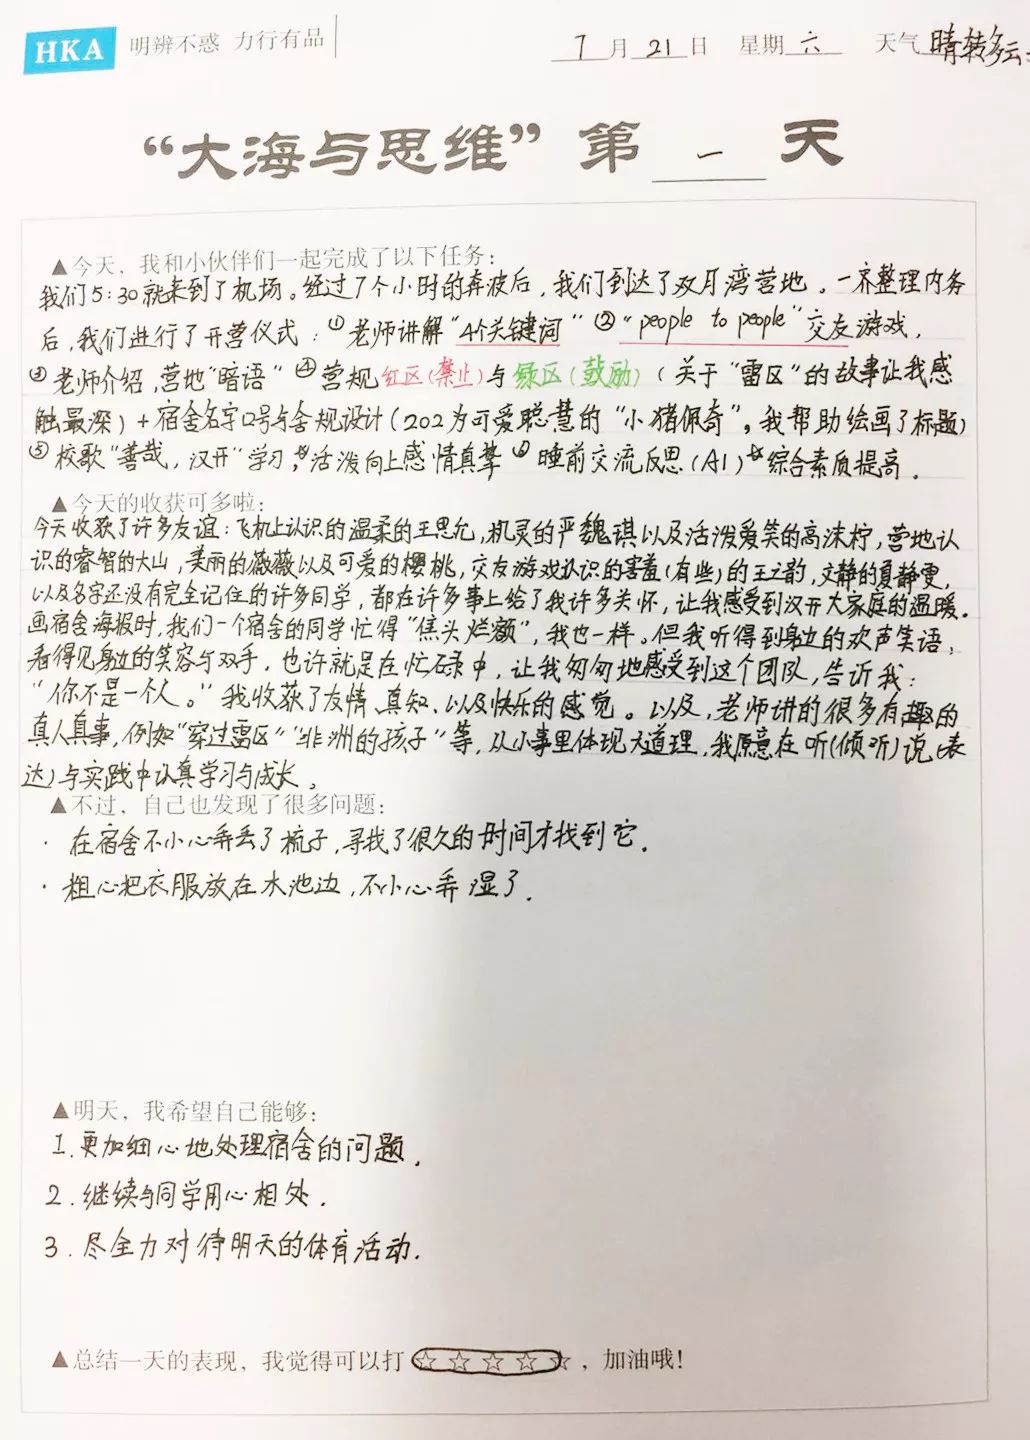 HKA 明辨不惑 力行有品
7月21日 星期六 天气晴转多云
“大海与思维”第一天
▲今天，我和小伙伴们一起完成了以下任务：
我们5:30就来到了机场。经过7个小时的奔波后，我们到达了双月湾营地。一齐整理内务
后，我们进行了开营仪式：①老师讲解“4个关键词”②“people to people”交友游戏，
③老师介绍，营地“暗语”④营规红区(禁止)与绿区(鼓励)（关于“雷区”的故事让我感
触最深）+宿舍名字口号与舍规设计(202为可爱聪慧的“小猪佩奇”。我帮助绘画了标题)
⑤校歌“善哉，汉开”学习，活泼向上感情真挚⑥睡前交流反思(AI)综合素质提高．
▲今天的收获可多啦：
今天收获了许多友谊：飞机上认识的温柔的王思允，机灵的严魏琪以及活泼爱笑的高沫柠，营地认
识的睿智的大山，美丽的薇薇以及可爱的樱桃，交友游戏认识的害羞(有些)的王之韵，文静的夏静雯，
以及名字还没有完全记住的许多同学，都在许多事上给了我许多关怀，让我感受到汉开大家庭的温暖．
画宿舍海报时，我们一个宿舍的同学忙得“焦头烂额”，我也一样。但我听得到身边的欢声笑语，
看得见身边的笑容与双手，也许就是在忙碌中，让我匆匆地感受到这个团队，告诉我：
“你不是一个人。”我收获了友情、真知、以及快乐的感觉。以及，老师讲的很多有趣的
真人真事，例如“穿过雷区”“非洲的孩子”等，从小事里体现大道理，我愿意在听(倾听)说(表
达)与实践中认真学习与成长。
▲不过，自己也发现了很多问题：
·在宿舍不小心弄丢了梳子，寻找了很久的时间才找到它．
·粗心把衣服放在水池边，不小心弄湿了．
▲明天，我希望自己能够：
1.更加细心地处理宿舍的问题．
2.继续与同学用心相处．
3.尽全力对待明天的体育活动．
▲总结一天的表现，我觉得可以打☆☆☆☆☆，加油哦！